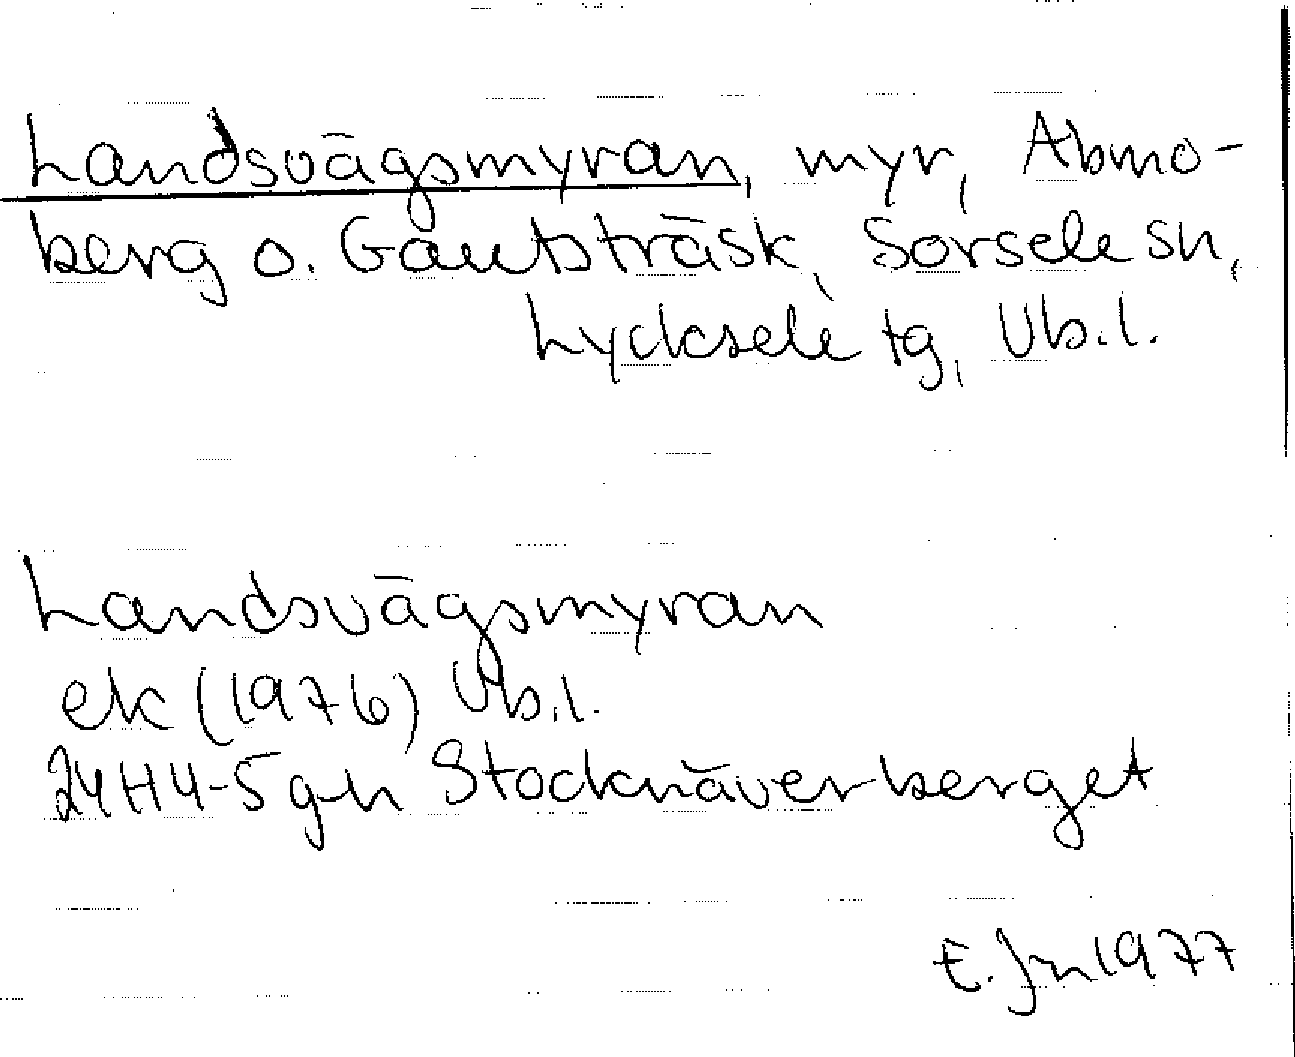 Landsvägsmyran, myr, Abmo-
berg o. Gautsträsk, Sorsele sn,
Lycksele tg, Vb.l.
Landsvägsmyran
ek (1976) Vb.l.
24H4-5g-h Stocknäverberget
E. Jn 1977